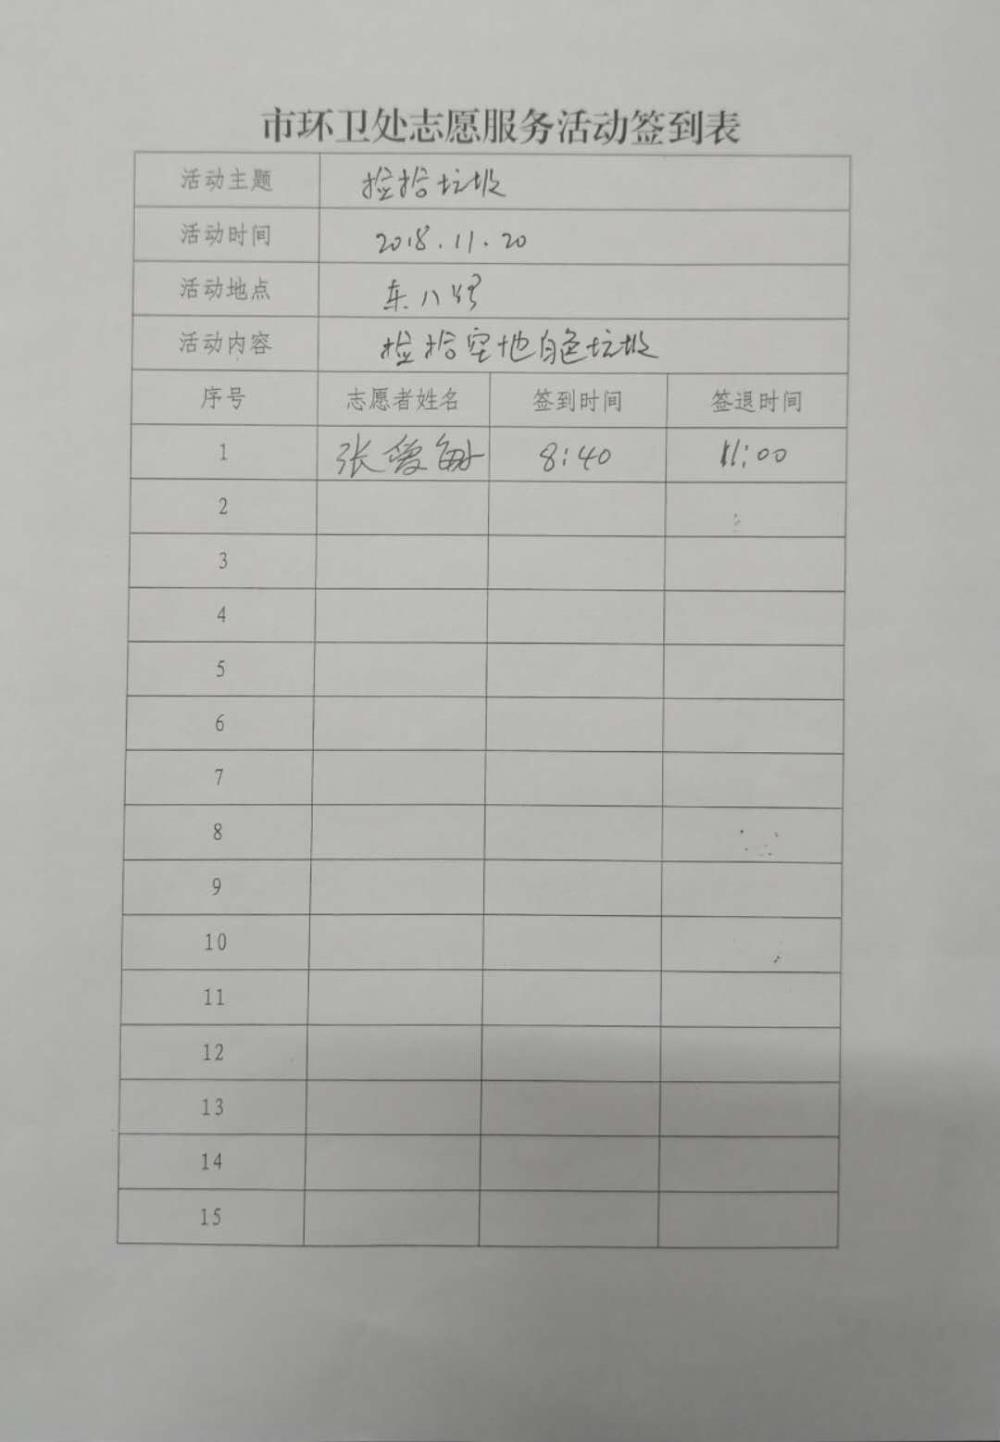 市环卫处志愿服务活动签到表
活动主题 捡拾垃圾
活动时间 2018.11.20
活动地点 东八路
活动内容 捡拾空地白色垃圾
序号 志愿者姓名 签到时间 签退时间
1 张爱敏 8:40 11:00
2
3
4
5
6
7
8
9
10
11
12
13
14
15